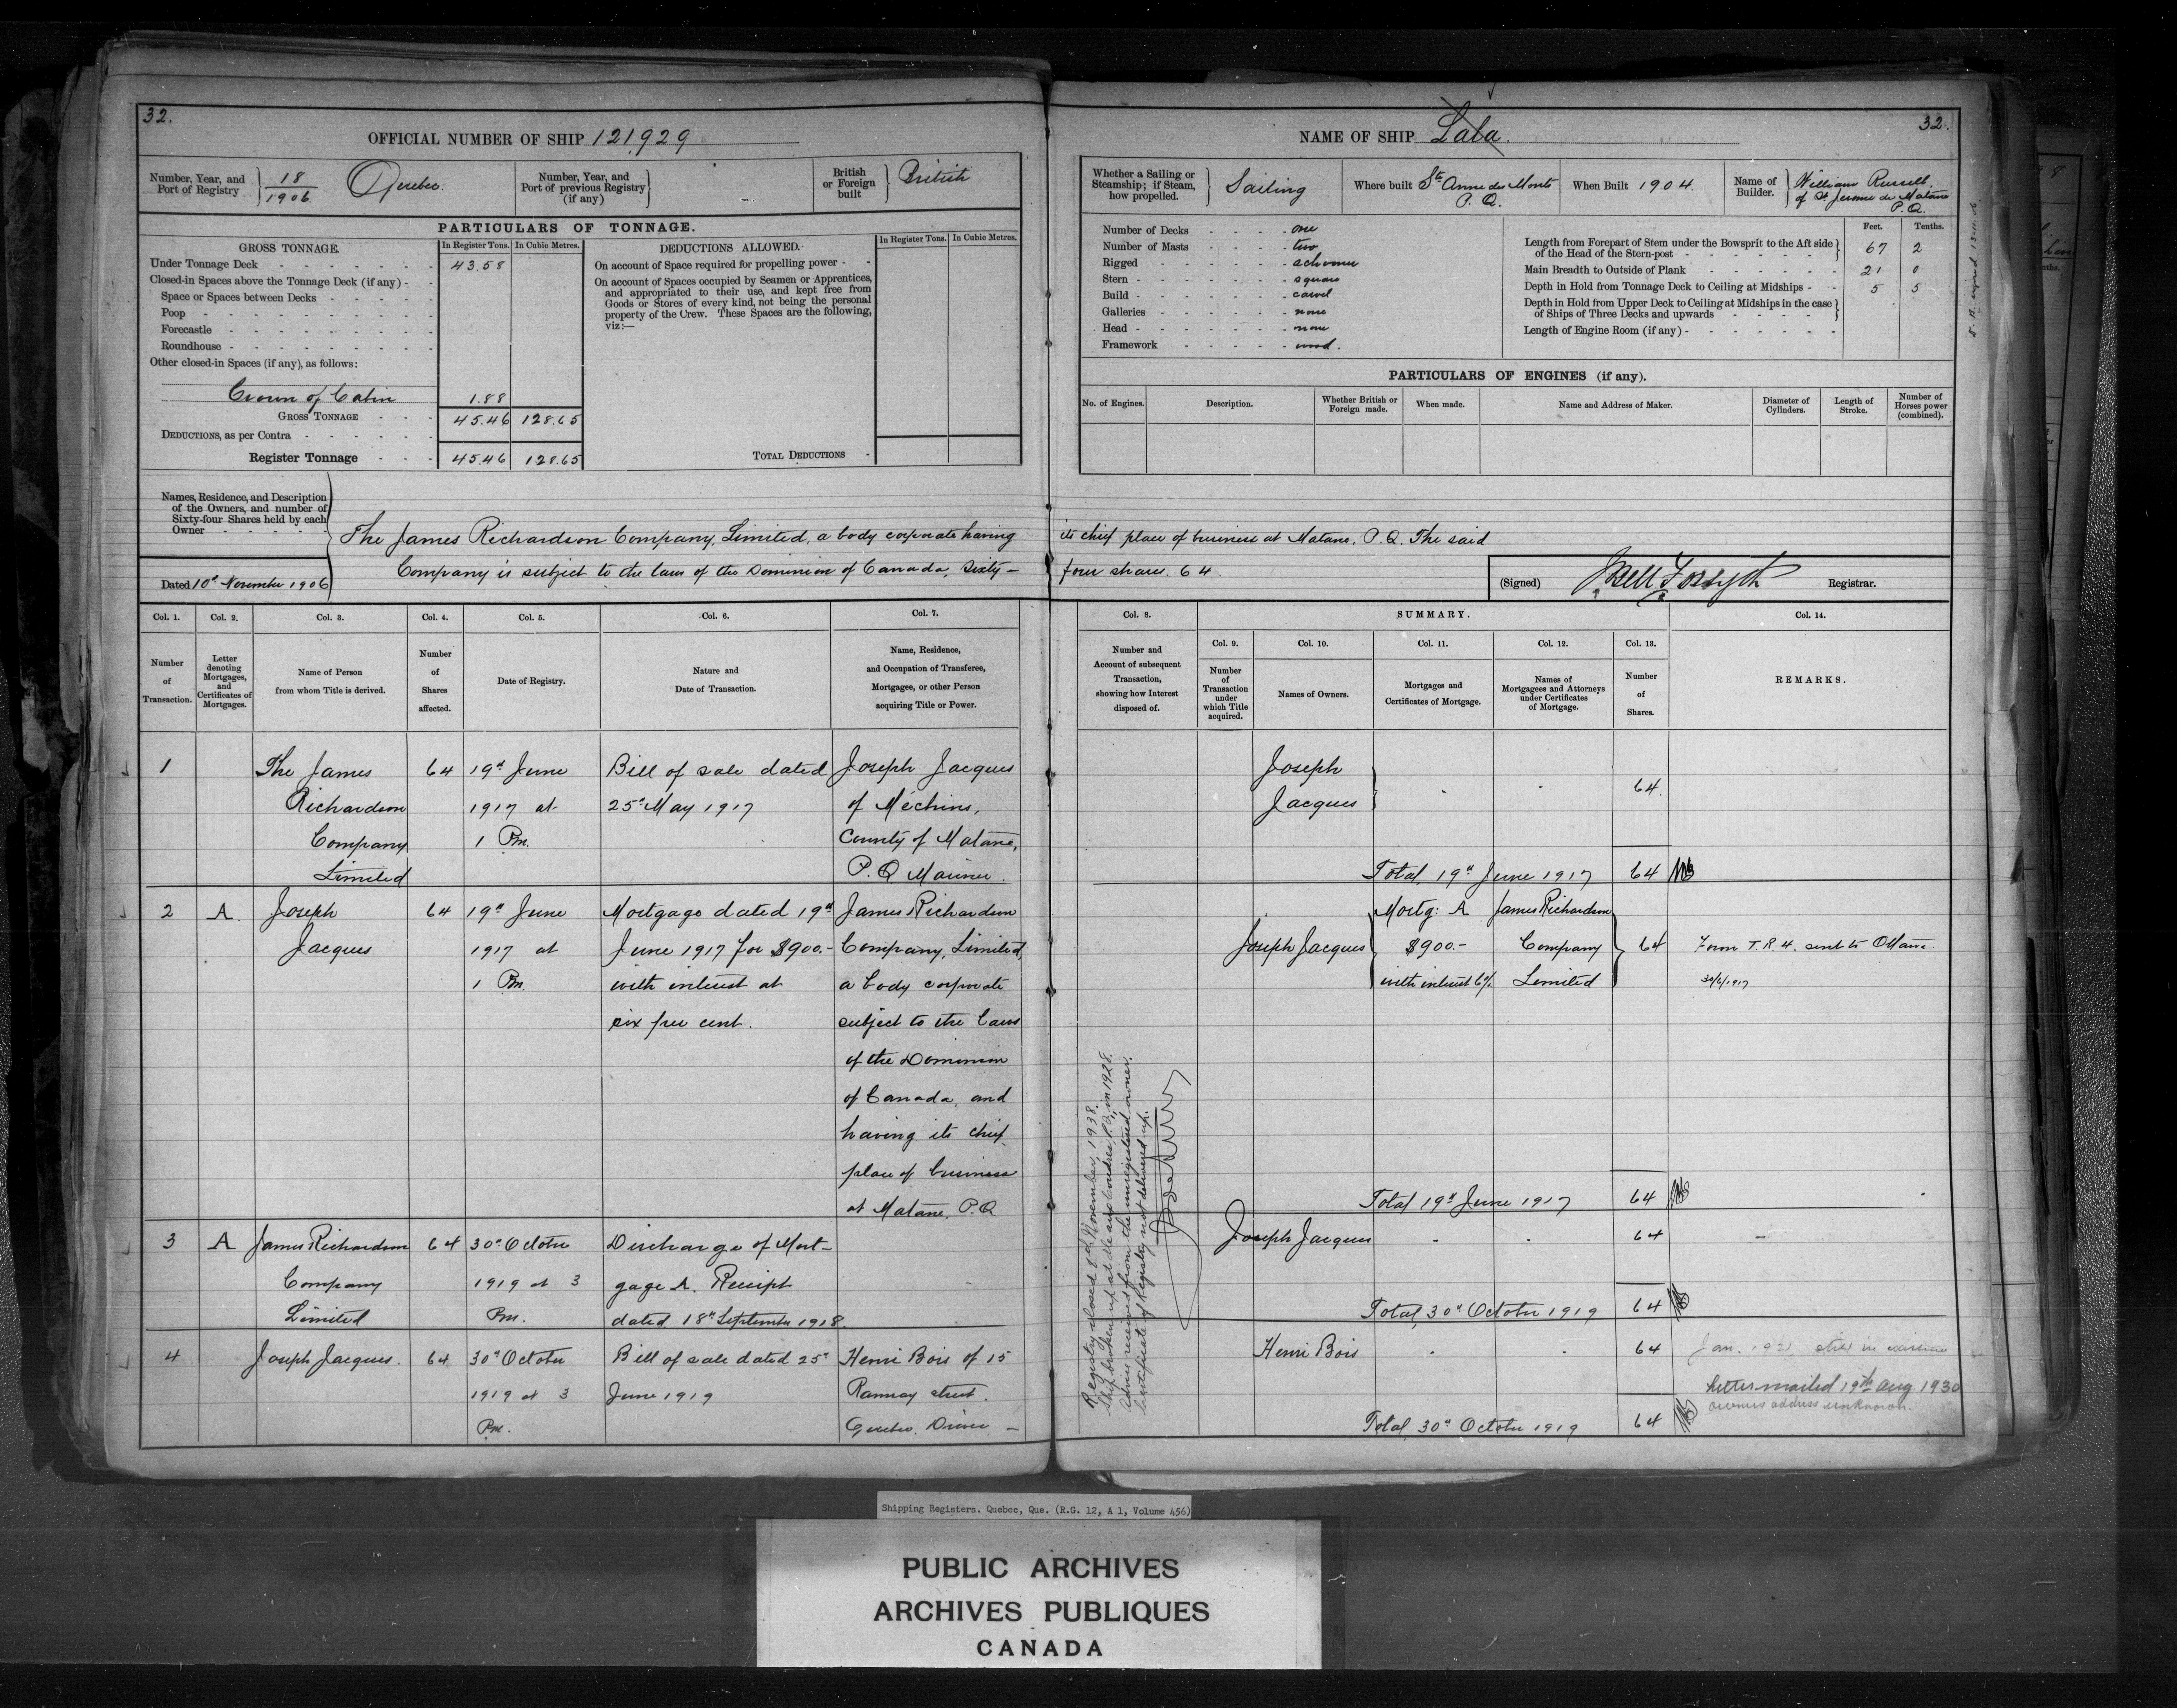 32.
OFFICIAL NUMBER OF SHIP 121,929
Number, Year, and Port of Registry } 18/1906 Quebec.
Number, Year, and Port of previous Registry (if any) } -
British or Foreign built } British
PARTICULARS OF TONNAGE.
GROSS TONNAGE. In Register Tons. In Cubic Metres.
Under Tonnage Deck 43.58
Closed-in Spaces above the Tonnage Deck (if any)
Space or Spaces between Decks
Poop
Forecastle
Roundhouse
Other closed-in Spaces (if any), as follows:
Crown of Cabin 1.88
GROSS TONNAGE 45.46 128.65
DEDUCTIONS, as per Contra
Register Tonnage 45.46 128.65
DEDUCTIONS ALLOWED. In Register Tons. In Cubic Metres.
On account of Space required for propelling power
On account of Spaces occupied by Seamen or Apprentices,
and appropriated to their use, and kept free from
Goods or Stores of every kind, not being the personal
property of the Crew. These Spaces are the following,
viz:—
TOTAL DEDUCTIONS
NAME OF SHIP Lala.
32.
Whether a Sailing or Steamship; if Steam, how propelled. } Sailing
Where built Ste Anne des Monts P.Q.
When Built 1904.
Name of Builder. } William Russell, of St Jerome de Matane P.Q.
Number of Decks one
Number of Masts two
Rigged schooner
Stern square
Build carvel
Galleries none
Head none
Framework wood.
Feet. Tenths.
Length from Forepart of Stem under the Bowsprit to the Aft side of the Head of the Stern-post 67 2
Main Breadth to Outside of Plank 21 0
Depth in Hold from Tonnage Deck to Ceiling at Midships 5 5
Depth in Hold from Upper Deck to Ceiling at Midships in the case of Ships of Three Decks and upwards
Length of Engine Room (if any)
PARTICULARS OF ENGINES (if any).
No. of Engines. Description. Whether British or Foreign made. When made. Name and Address of Maker. Diameter of Cylinders. Length of Stroke. Number of Horses power (combined).
Names, Residence, and Description
of the Owners, and number of
Sixty-four Shares held by each
Owner
The James Richardson Company, Limited, a body corporate having its chief place of business at Matane, P.Q. The said
Company is subject to the laws of the Dominion of Canada, Sixty- four shares. 64.
Dated 10th November 1906
(Signed) JBell Forsyth Registrar.
Col. 1. Number of Transaction.
Col. 2. Letter denoting Mortgages, and Certificates of Mortgages.
Col. 3. Name of Person from whom Title is derived.
Col. 4. Number of Shares affected.
Col. 5. Date of Registry.
Col. 6. Nature and Date of Transaction.
Col. 7. Name, Residence, and Occupation of Transferee, Mortgagee, or other Person acquiring Title or Power.
Col. 8. Number and Account of subsequent Transaction, showing how Interest disposed of.
SUMMARY.
Col. 9. Number of Transaction under which Title acquired.
Col. 10. Names of Owners.
Col. 11. Mortgages and Certificates of Mortgage.
Col. 12. Names of Mortgagees and Attorneys under Certificates of Mortgage.
Col. 13. Number of Shares.
Col. 14. REMARKS.
1 The James 64 19th June Bill of sale dated Joseph Jacques
Richardson 1917 at 25th May 1917 of Méchins,
Company 1 Pm. County of Matane,
Limited P.Q Mariner.
Joseph
Jacques } 64.
Total, 19th June 1917 64
2 A. Joseph 64 19th June Mortgage dated 19th James Richardson
Jacques 1917 at June 1917 for $900.- Company, Limited,
1 Pm. with interest at a body corporate
six per cent. subject to the laws
of the Dominion
of Canada, and
having its chief
place of business
at Matane. P.Q
Mortg: A James Richardson
Joseph Jacques $900.- Company 64 Form T.R.4. sent to Ottawa
with interest 6% Limited 30/6/1917
Total 19th June 1917 64
3 A James Richardson 64 30th October Discharge of Mort-
Company 1919 at 3 gage A. Receipt
Limited Pm. dated 18th September 1918.
Joseph Jacques 64
Total, 30th October 1919 64
4 Joseph Jacques. 64 30th October Bill of sale dated 25th Henri Bois of 15
1919 at 3 June 1919 Ramsay street.
Pm. Quebec.
Henri Bois 64 Jan. 1921 still in existence
Letter mailed 19th Aug 1930
owners address unknown.
Total, 30th October 1919 64
Registry closed 8th November, 1938.
Ship broken up at Les Escoumdes, P.Q., in 1928.
Advice received from the unregistered owner.
Certificate of Registry not delivered up.
Shipping Registers. Quebec, Que. (R.G. 12, A 1, Volume 456)
PUBLIC ARCHIVES
ARCHIVES PUBLIQUES
CANADA